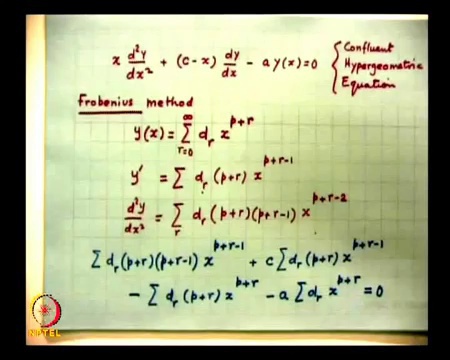 x d²y/dx² + (c-x) dy/dx - a y(x) = 0 { Confluent
Hypergeometric
Equation
Frobenius method
y(x) = ∑_{r=0}^{∞} d_r x^{p+r}
y' = ∑ d_r (p+r) x^{p+r-1}
d²y/dx² = ∑_r d_r (p+r)(p+r-1) x^{p+r-2}
∑ d_r (p+r)(p+r-1) x^{p+r-1} + c ∑ d_r (p+r) x^{p+r-1}
- ∑ d_r (p+r) x^{p+r} - a ∑ d_r x^{p+r} = 0
NPTEL